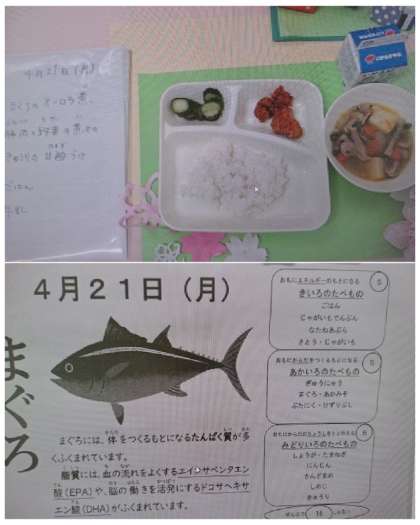 4月21日(月)
まぐろのオーロラ煮
ごはん
4月21日(月)
まぐろ
まぐろには、体をつくるもとになるたんぱく質が多
くふくまれています。
脂質には、血の流れをよくするエイコサペンタエン
酸(EPA)や、脳の働きを活発にするドコサヘキサ
エン酸(DHA)がふくまれています。
おもにエネルギーのもとになる
きいろのたべもの
5
ごはん
じゃがいもでんぷん
なたねあぶら
さとう・じゃがいも
おもにからだをつくるもとになる
あかいろのたべもの
ぎゅうにゅう
まぐろ・あかみそ
ぶたにく・けずりぶし
みどりいろのたべもの
6
しょうが・たまねぎ
にんじん
さんどまめ
しめじ
きゅうり
16